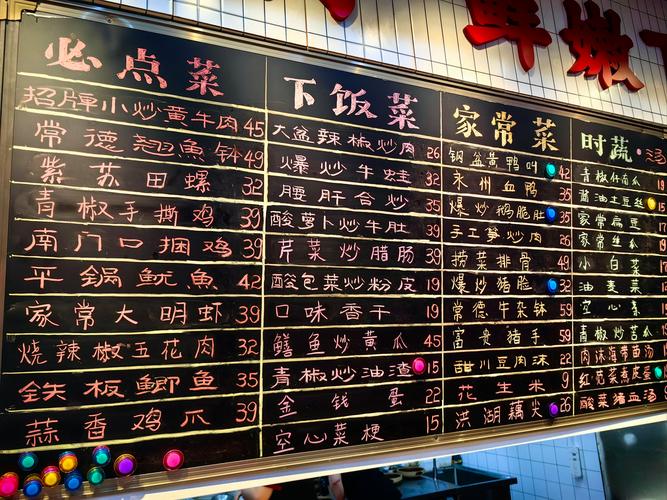 鲜嫩
必点菜
招牌小炒黄牛肉45
常德翘魚钵49
紫苏田螺32
青椒手撕鸡39
南门口捆鸡39
平锅鱿魚42
家常大明虾39
烧辣椒五花肉32
铁板鲫鱼35
蒜香鸡爪39
下饭菜
大盆辣椒炒肉26
爆炒牛蛙32
腰肝合炒35
酸萝卜炒牛肚39
芹菜炒腊肠39
酸包菜炒粉皮19
口味香干19
鳝鱼炒黄瓜45
青椒炒油渣15
金钱蛋22
空心菜梗15
家常菜
钢盆黄鸭叫42
永州血鸭35
爆炒鹅脆肚35
手工笋炒肉26
捞菜排骨49
爆炒猪脆32
常德牛杂钵59
富贵猪手59
甜川豆肉沫22
花生米9
洪湖藕尖26
时蔬
青椒仔南瓜
酱油土豆丝15
家常扁豆17
家常丝瓜
小白菜
油麦菜
空心菜
青椒炒苦瓜
肉沫海带苗汤
红苋菜煮皮蛋
酸菜猪血汤